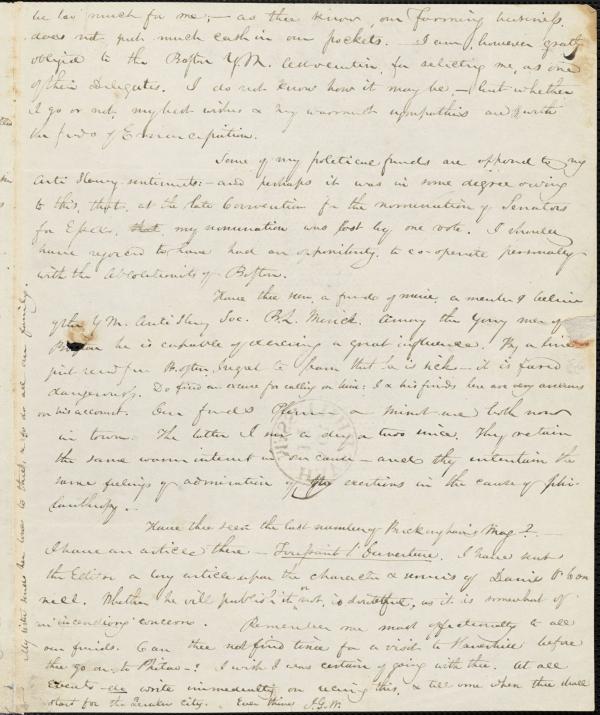 be too much for me; — as thee know, our farming business
does not put much cash in our pockets. — I am, however greatly
obliged to the Boston Y. M. Convention for selecting me, as one
of their Delegates. I do not know how it may be, — but whether
I go or not, my best wishes & my warmest sympathies are with
the friends of Emancipation.
Some of my political friends are opposed to my
Anti Slavery sentiments: — and perhaps it was in some degree owing
to this, that, at the late Convention for the nomination of Senators
for Essex, my nomination was lost by one vote. I should
have rejoiced to have had an opportunity to co-operate personally
with the Abolitionists of Boston.
Have thee seen, a friend of mine, a member I believe
of the Y M. Anti Slavery Soc. B. L. Mirick. Among the young men of
Boston he is capable of exercising a great influence. By a line
just recd from Boston, I regret to learn that he is sick — it is feared
dangerously. Do find an excuse for calling on him: I & his friends here are very anxious
on his account. Our friends & Minot are both now
in town. The latter I saw a day or two since. They retain
the same warm interest in our cause — and they entertain the
same feelings of admiration of thy exertions in the cause of phi-
lanthropy. —
Have thee seen the last number of Buckingham's Mag? —
I have an article there — Toussaint L'Ouverture. I have sent
the Editor a long article upon the character & services of Daniel O'Con
nell. Whether he will publish it or not, is doubtful, as it is somewhat of
an incendiary concern. Remember me most affectionately to all
our friends. Can thee not find time for a visit to Haverhill before
thee go on to Philad—? I wish I was certain of going with thee. At all
events do write immediately on receiving this, & tell me when thee shall
start for the Quaker city. Ever thine J. G. W.
My sister sends her love to thee, & so do all our family.